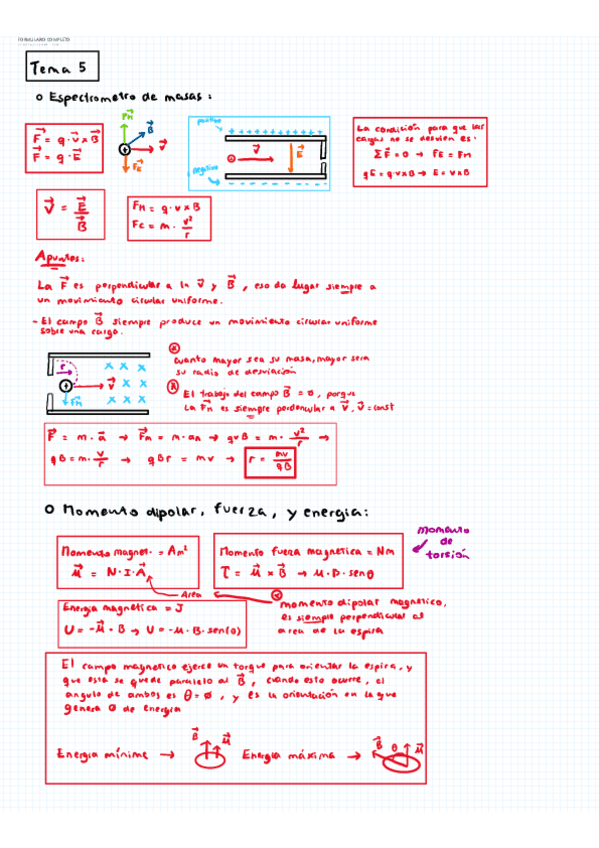 FORMULARIO COMPLETO
Tema 5
o Espectrometro de masas:
F = q · v x B
F = q · E
Fm
B
v
FE
positivo
+ + + + + + + + + + + +
v
E
negativo
La condición para que las
cargas no se desvien es:
ΣF = 0 → FE = Fm
qE = q·v×B → E = v×B
v = E/B
Fm = q · v × B
Fc = m · v²/r
Apuntes:
La F es perpendicular a la v y B, eso da lugar siempre a
un movimiento circular uniforme.
- El campo B siempre produce un movimiento circular uniforme
sobre una carga.
r
x x x
v x x
Fm x x x
cuanto mayor sea su masa, mayor sera
su radio de desviación
El trabajo del campo B = ø, porque
La Fm es siempre perdencular a v, v = const
F = m · a → Fm = m · an → qvB = m · v²/r →
qB = m · v/r → qBr = mv → r = mv/qB
o Momento dipolar, fuerza, y energia:
Momento magnet. = Am²
μ = N · I · A
Area
Momento fuerza magnetica = Nm
τ = μ × B → μ · B · senθ
momento
de
torsión
Energia magnética = J
U = -μ · B → U = -μ · B · sen(θ)
momento dipolar magnético,
es siempre perpendicular al
area de la espira
El campo magnetico ejerce un torque para orientar la espira, y
que esta se quede paralelo al B, cuando esto ocurre, el
angulo de ambos es θ = ø, y es la orientación en la que
genera 0 de energia
Energia mínime → B μ Energia máxima → B θ μ